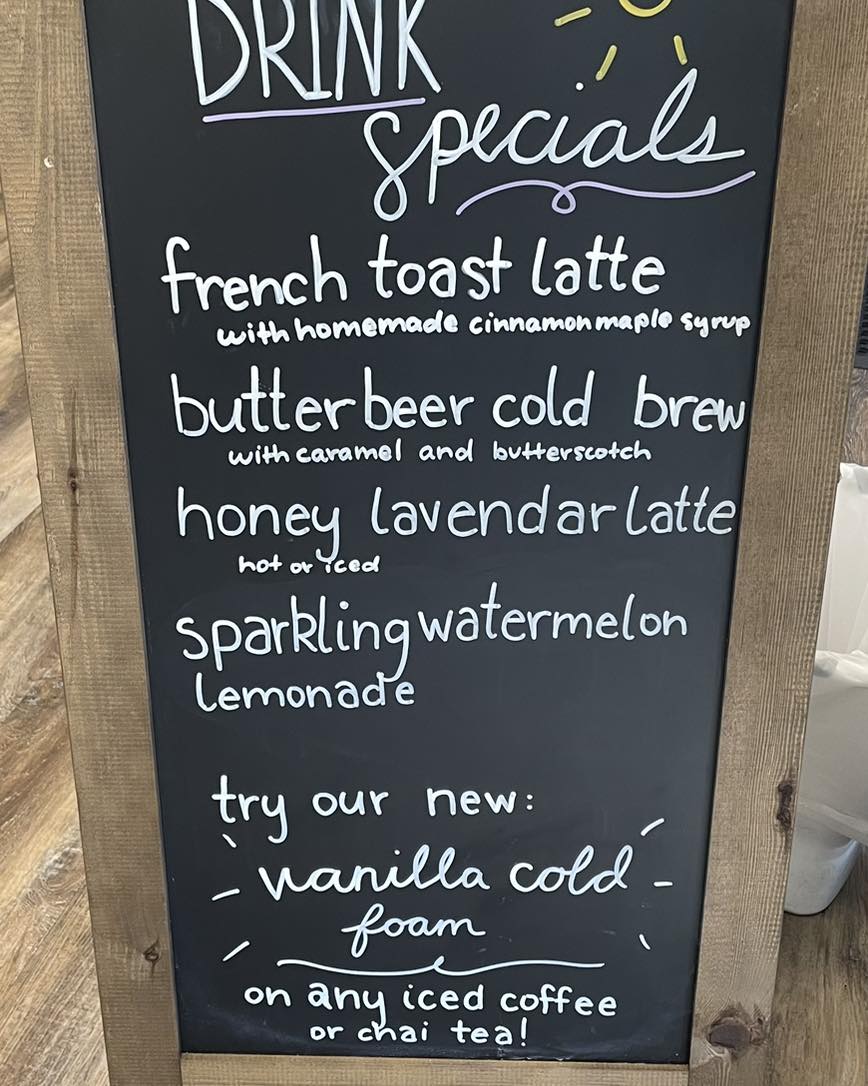 DRINK
specials
french toast latte
with homemade cinnamon maple syrup
butter beer cold brew
with caramel and butterscotch
honey lavendar latte
hot or iced
sparkling watermelon
lemonade
try our new:
vanilla cold
foam
on any iced coffee
or chai tea!